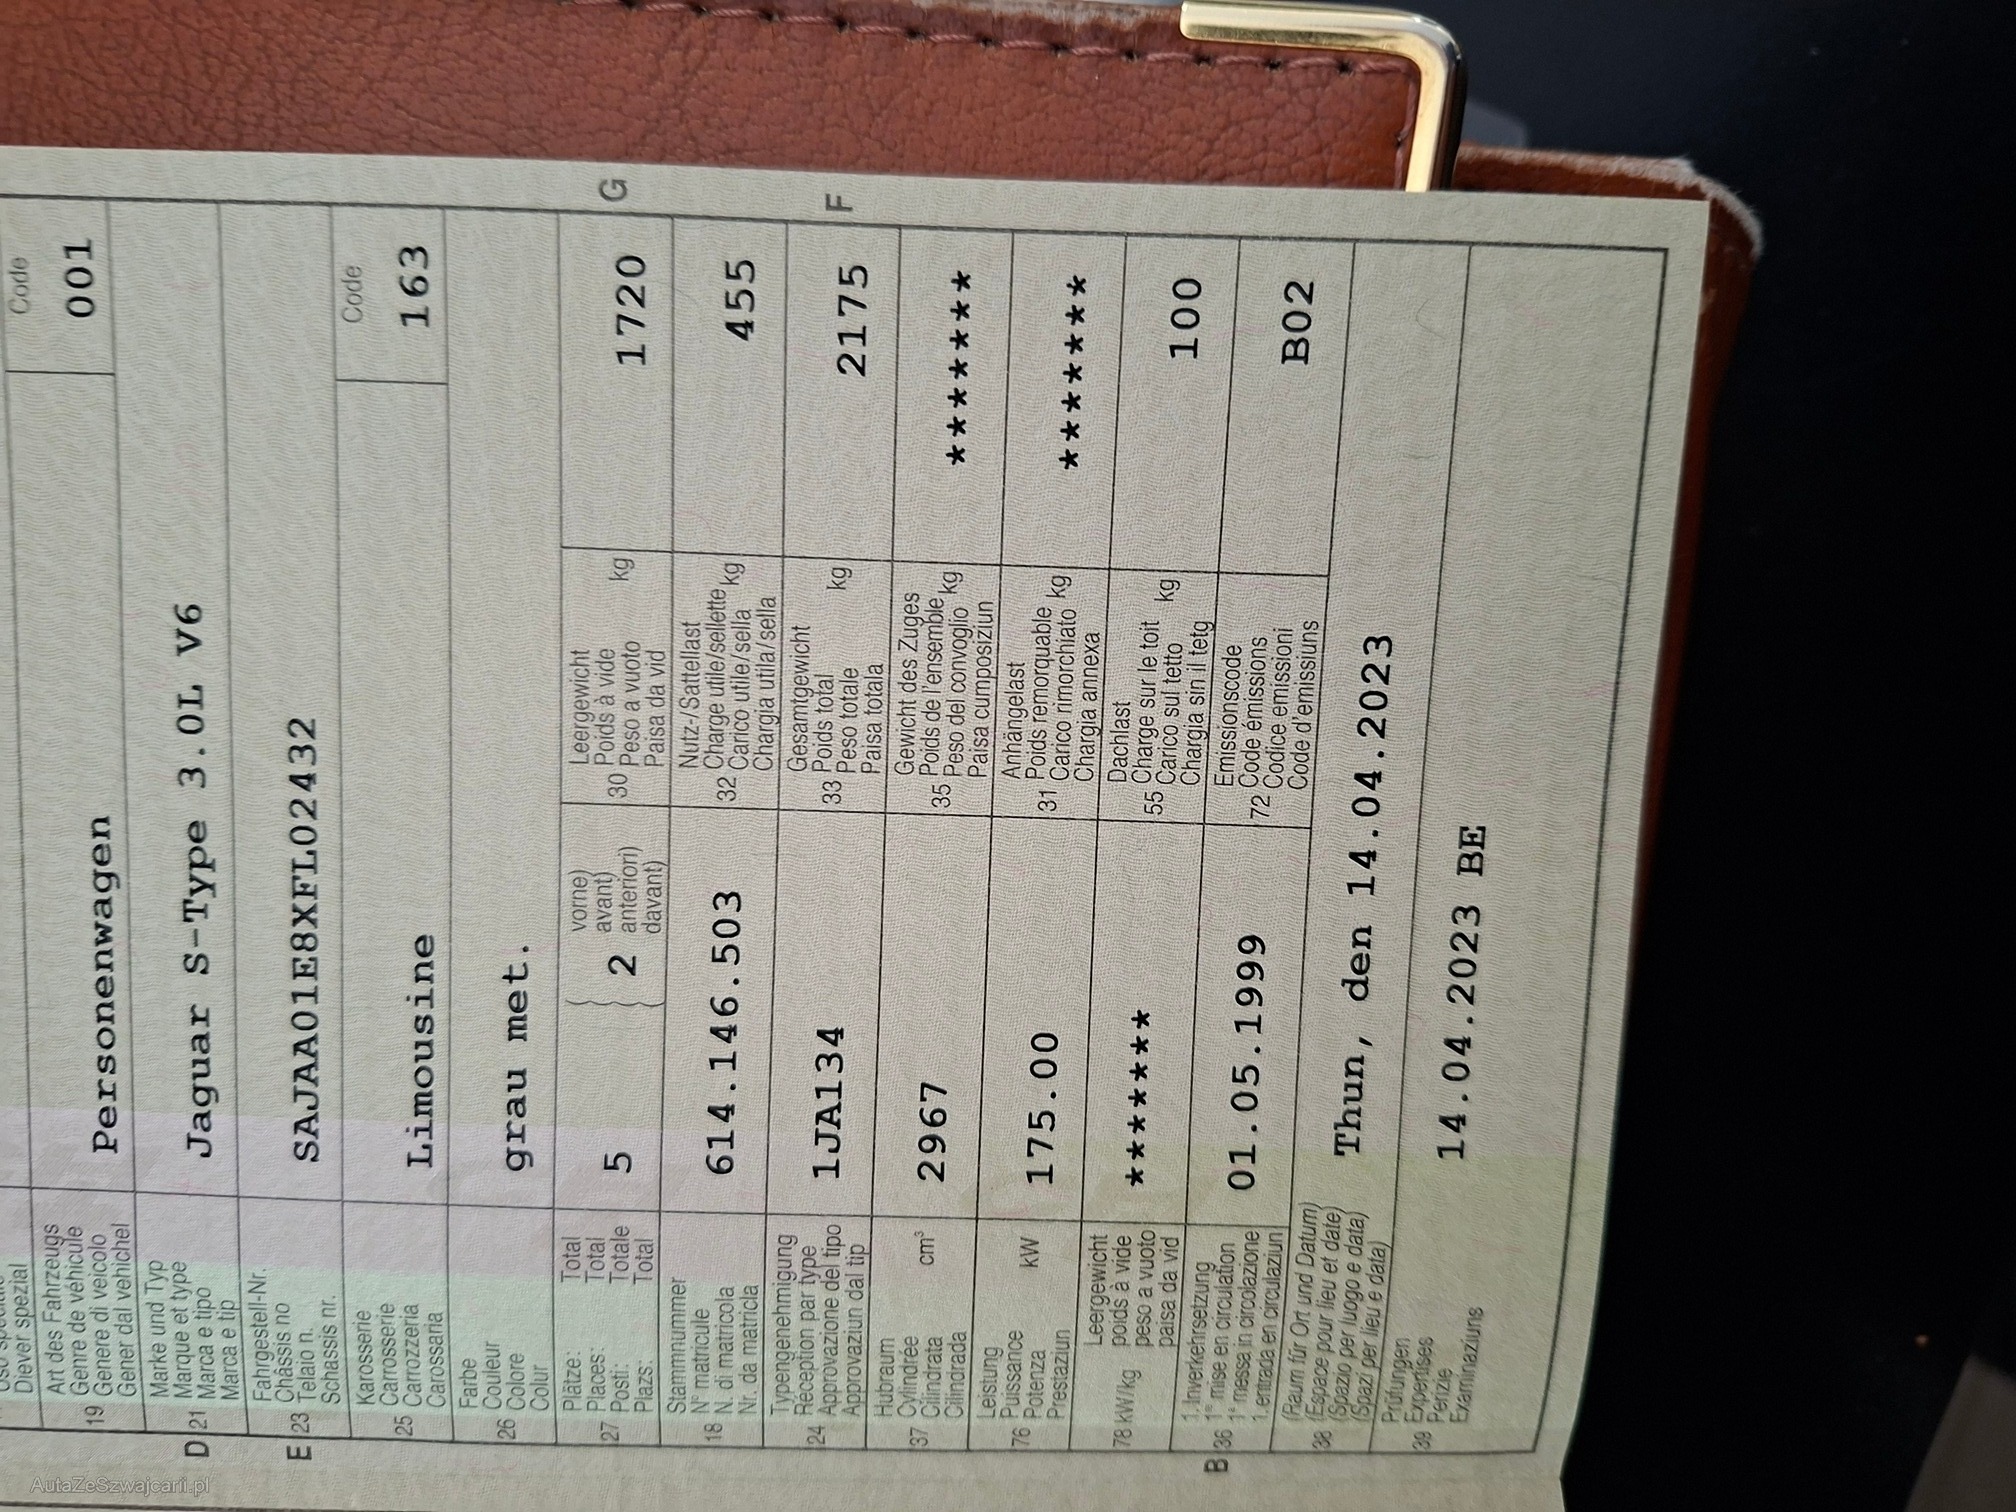 Diever spezial
Code
19
Art des Fahrzeugs
Genre de véhicule
Genere di veicolo
Gener dal vehichel
Personenwagen
001
D 21
Marke und Typ
Marque et type
Marca e tipo
Marca e tip
Jaguar S-Type 3.0L V6
E 23
Fahrgestell-Nr.
Châssis no
Telaio n.
Schassis nr.
SAJAA01E8XFL02432
25
Karosserie
Carrosserie
Carrozzeria
Carossaria
Limousine
Code
163
26
Farbe
Couleur
Colore
Colur
grau met.
27
Plätze: Total
Places: Total
Posti: Totale
Plazs: Total
5
2
vorne)
avant)
anteriori)
davant)
30
Leergewicht
Poids à vide
Peso a vuoto kg
Paisa da vid
1720
G
18
Stammnummer
N° matricule
N. di matricola
Nr. da matricla
614.146.503
32
Nutz-/Sattellast
Charge utile/sellette kg
Carico utile/sella
Chargia utila/sella
455
24
Typengenehmigung
Réception par type
Approvazione del tipo
Approvaziun dal tip
1JA134
33
Gesamtgewicht
Poids total
Peso totale kg
Paisa totala
2175
F
37
Hubraum
Cylindrée cm³
Cilindrata
Cilindrada
2967
35
Gewicht des Zuges
Poids de l'ensemble kg
Peso del convoglio
Paisa cumposiziun
*******
76
Leistung
Puissance kW
Potenza
Prestaziun
175.00
31
Anhängelast
Poids remorquable kg
Carico rimorchiato
Chargia annexa
*******
78 kW/kg
Leergewicht
poids à vide
peso a vuoto
paisa da vid
*******
55
Dachlast
Charge sur le toit kg
Carico sul tetto
Chargia sin il tetg
100
B 36
1. Inverkehrsetzung
1ᵉ mise en circulation
1ᵃ messa in circolazione
1. entrada en circulaziun
01.05.1999
72
Emissionscode
Code émissions
Codice emissioni
Code d'emissiuns
B02
38
(Raum für Ort und Datum)
(Espace pour lieu et date)
(Spazio per luogo e data)
(Spazi per lieu e data)
Thun, den 14.04.2023
39
Prüfungen
Expertises
Perizie
Examinaziuns
14.04.2023 BE
AutaZeSzwajcarii.pl